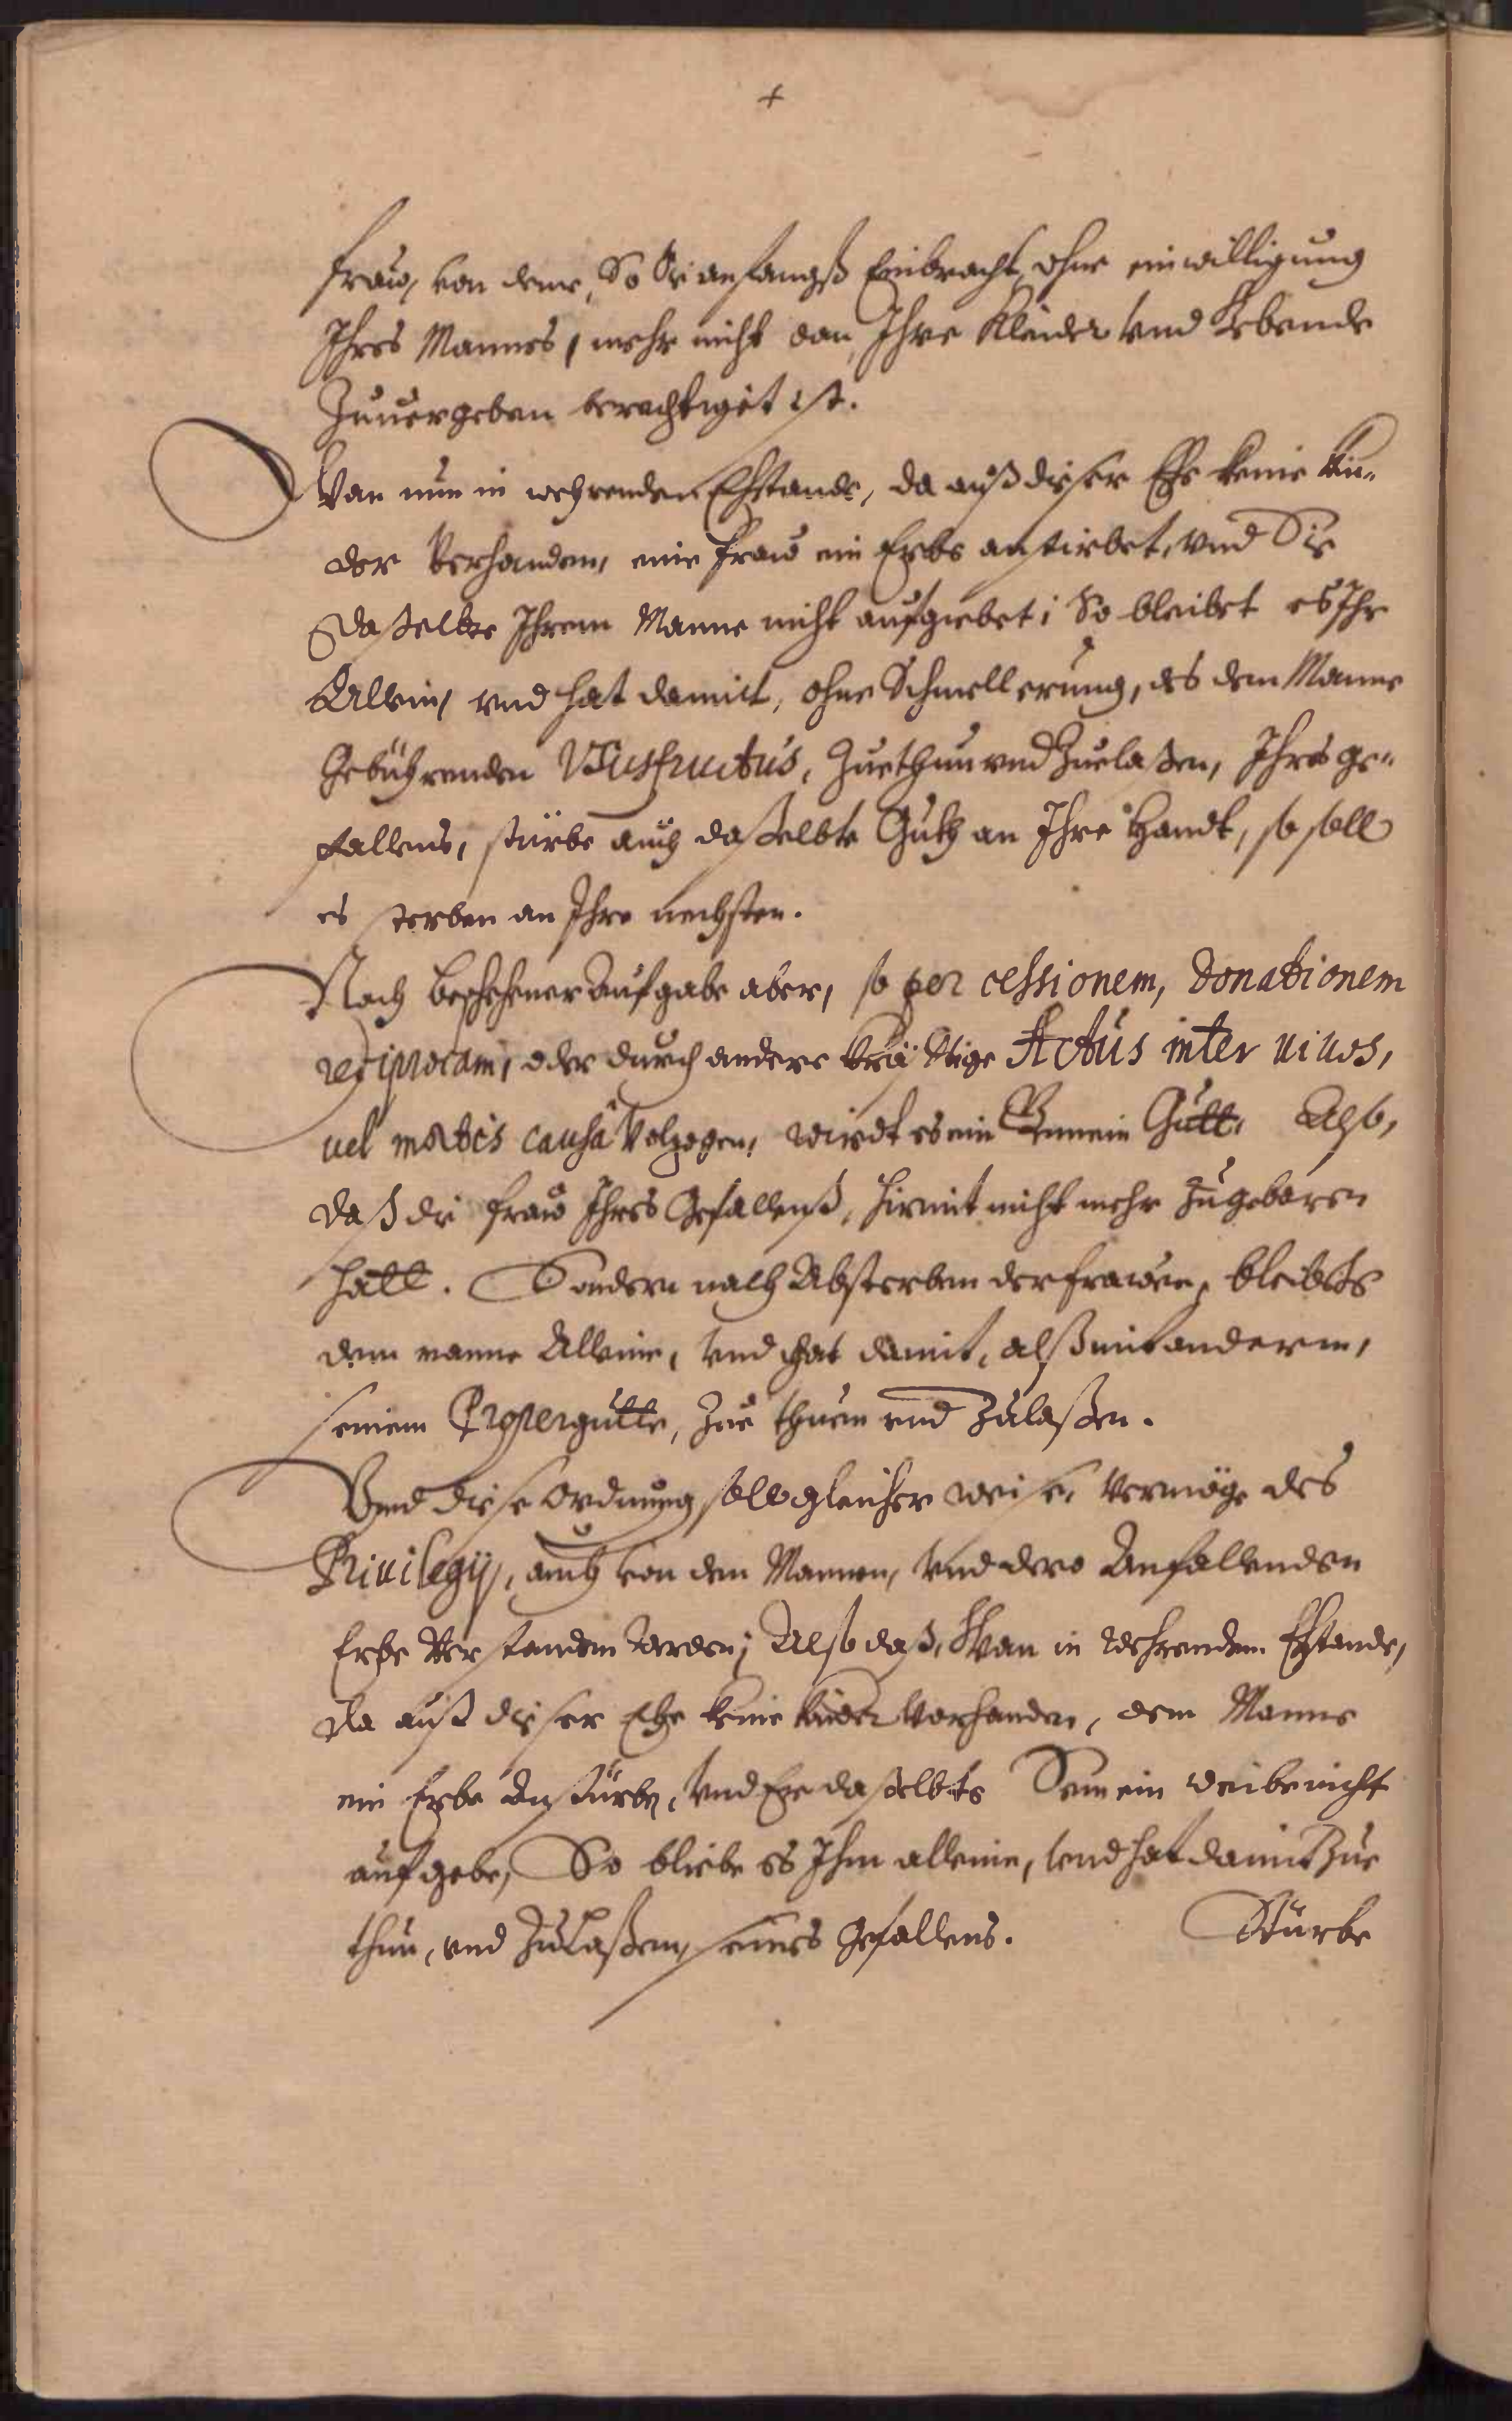 +
fraw, von deme, So Sie anfangß Einbracht, ohne einwilligung
Ihres Mannes, mehr nicht dan, Ihre Kleider vnd Gebende
Zuuergeben berechtiget ist.
Wan nun in wehrenden Ehstande, da auß dieser Ehe keine Kin-
der Verhanden, eine fraw ein Erbe anstirbet, vnd Sie
Daßelbte Ihrem Manne nicht aufgiebet; So bleibet es Ihr
Allein, vnd hat damit, ohne Schmellerung, des dem Manne
Gebührenden Vsusfructus, Zuethun vnd Zuelaßen, Ihres ge-
fallens, stürbe auch daßelbte Guth an Ihre Handt, so soll
es sterben an Ihre nechsten.
Nach beschehener Aufgabe aber, so per cessionem, Donationem
reciprocam, oder durch andere kräfftige Actus inter uiuos,
uel mortis causâ Volzogen, wirdt es ein Gemein Gutt. Also,
daß die fraw Ihres Gefallenß, hirmit nicht mehr Zugebaren
hatt. Sondern nach Absterben der frawen, bleibets
dem manne Alleine, vnd hat damit, alß mit anderem,
seinem Propergutte, Zue thuen vnd Zulaßen.
Vnd diese Ordnung, soll gleicher weise, Vermöge des
Priuilegij, auch von dem Mannen, vnd dero Anfallenden
Erbe Verstanden werden; Also daß, Wan in wehrendem Ehstande,
Da auß dieser Ehe keine kinder Vorhanden, dem Manne
ein Erbe Anstürbe, Vnd Er daßelbte Seinem weibe nicht
aufgebe, So bliebe es Ihm alleine, vnd hat damit Zue
thun, vnd Zulaßen, seines Gefallens. Stürbe